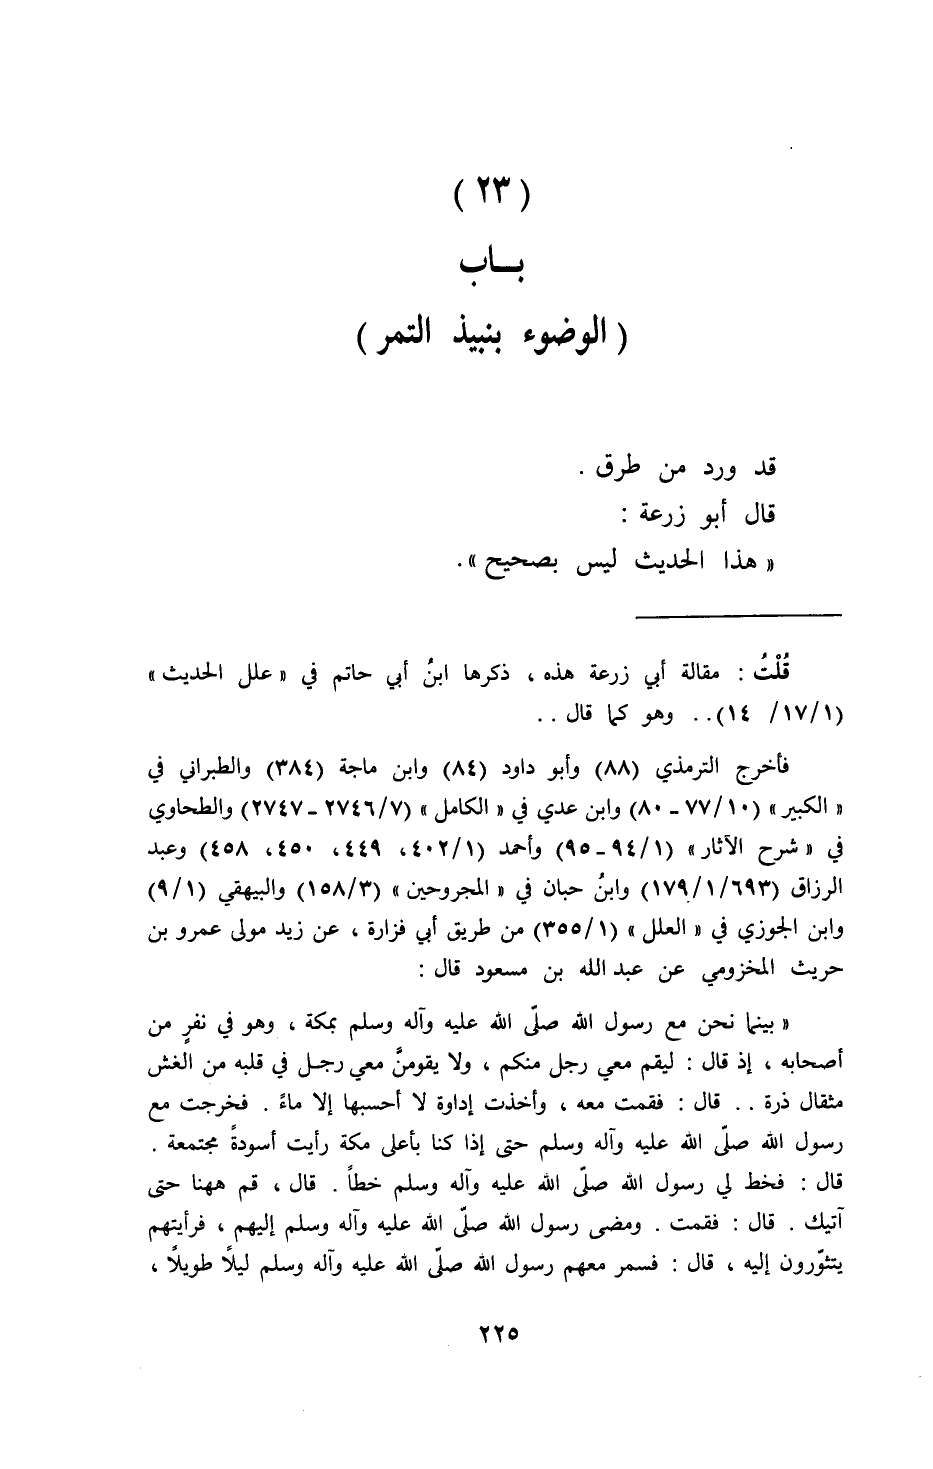 ( ٢٣ )
بـاب
( الوضوء بنبيذ التمر )
قد ورد من طرق .
قال أبو زرعة :
« هذا الحديث ليس بصحيح » .
قُلْتُ : مقالة أبي زرعة هذه ، ذكرها ابنُ أبي حاتم في « علل الحديث »
(١/١٧/ ١٤) .. وهو كما قال ..
فأخرج الترمذي (٨٨) وأبو داود (٨٤) وابن ماجة (٣٨٤) والطبراني في
« الكبير » (١٠/ ٧٧ ـ ٨٠) وابن عدي في « الكامل » (٧/ ٢٧٤٦ ـ ٢٧٤٧) والطحاوي
في « شرح الآثار » (١/ ٩٤ ـ ٩٥) وأحمد (١/ ٤٠٢، ٤٤٩، ٤٥٠، ٤٥٨) وعبد
الرزاق (١/١٧٩/ ٦٩٣) وابنُ حبان في « المجروحين » (٣/ ١٥٨) والبيهقي (١/ ٩)
وابن الجوزي في « العلل » (١/ ٣٥٥) من طريق أبي فزارة ، عن زيد مولى عمرو بن
حريث المخزومي عن عبد الله بن مسعود قال :
« بينما نحن مع رسول الله صلّى الله عليه وآله وسلم بمكة ، وهو في نفرٍ من
أصحابه ، إذ قال : ليقم معي رجل منكم ، ولا يقومنَّ معي رجـل في قلبه من الغش
مثقال ذرة .. قال : فقمت معه ، وأخذت إداوة لا أحسبها إلا ماءً . فخرجت مع
رسول الله صلّى الله عليه وآله وسلم حتى إذا كنا بأعلى مكة رأيت أسودةً مجتمعة .
قال : فخط لي رسول الله صلّى الله عليه وآله وسلم خطاً . قال ، قم ههنا حتى
آتيك . قال : فقمت . ومضى رسول الله صلّى الله عليه وآله وسلم إليهم ، فرأيتهم
يتثوّرون إليه ، قال : فسمر معهم رسول الله صلّى الله عليه وآله وسلم ليلًا طويلًا ،
٢٢٥